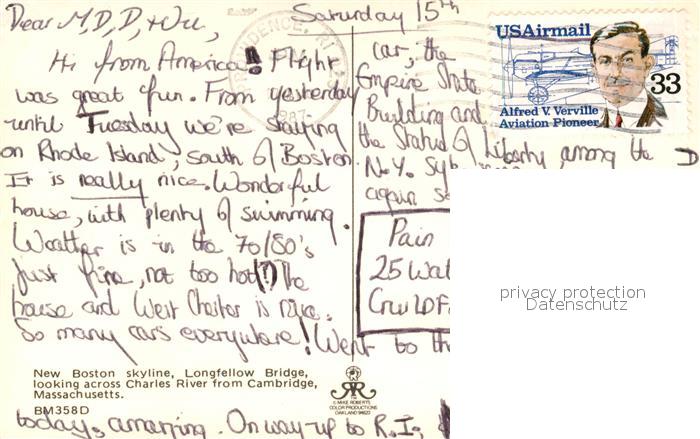 Saturday 15th
Dear M, D, D, + Wu,
Hi from America! Flight
was great fun. From yesterday
until Tuesday we're staying
on Rhode Island, south of Boston.
It is really nice. Wonderful
house, with plenty of swimming.
Weather is in the 70/80's
just fine, not too hot(!) The
house and West Chester is nice.
So many cars everywhere! Went to th
car, the
Empire State
Building and
the Statue of Liberty, among the
N.Y.
again se
Pain
25 Wat
USAirmail
33
Alfred V. Verville
Aviation Pioneer
PROVIDENCE, RI
1987
privacy protection
Datenschutz
New Boston skyline, Longfellow Bridge,
looking across Charles River from Cambridge,
Massachusetts.
BM358D
© MIKE ROBERTS
COLOR PRODUCTIONS
OAKLAND 94620
today, amazing. On way up to R.I.,